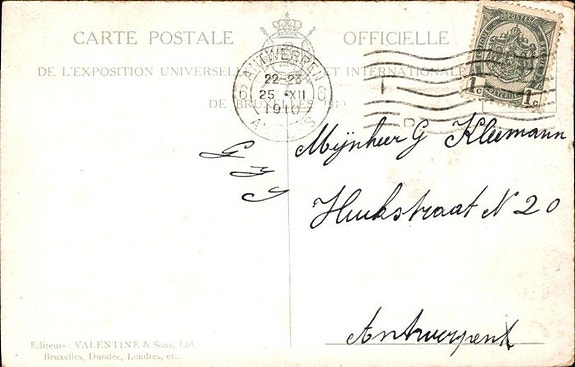 CARTE POSTALE OFFICIELLE
DE L'EXPOSITION UNIVERSELLE ET INTERNATIONALE
DE BRUXELLES 1910
ANTWERPEN
22-23
6 25 XII 6
1910
ANVERS
1 1
G Y Y
Mÿnheer G Kleemann
Huikstraat N 20
Antwerpen
Editeurs: VALENTINE & Sons, Ltd.
Bruxelles, Dundee, Londres, etc.